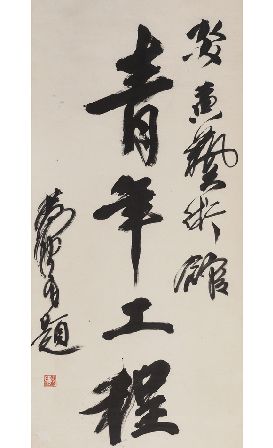 敦煌藝術館
青年工程
題